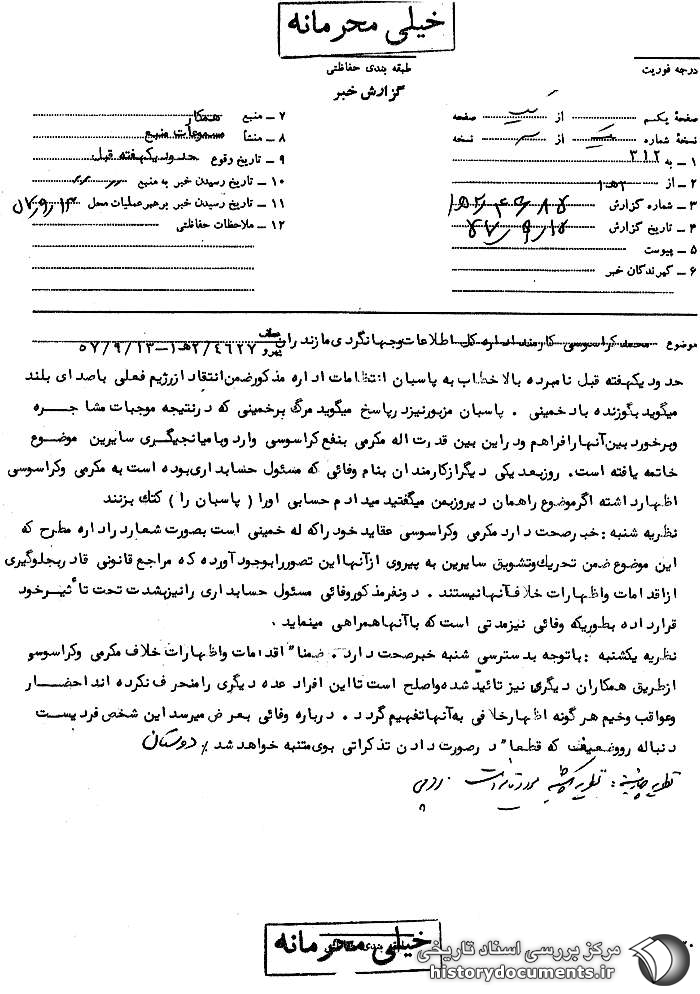 خیلی محرمانه
طبقه بندی حفاظتی
گزارش خبر
درجه فوریت
صفحهٔ یکم از صفحه
نسخهٔ شماره از نسخه
۱ ـ به ۳۱۲
۲ ـ از ۲ھ۱
۳ ـ شماره گزارش
۴ ـ تاریخ گزارش
۵ ـ پیوست
۶ ـ گیرندگان خبر
۷ ـ منبع همکار
۸ ـ منشأ مسموعات منبع
۹ ـ تاریخ وقوع حدود یکهفته قبل
۱۰ ـ تاریخ رسیدن خبر به منبع
۱۱ ـ تاریخ رسیدن خبر برهبر عملیات محل
۱۲ ـ ملاحظات حفاظتی
موضوع محمد کراسوسی کارمند اداره کل اطلاعات وجهانگردی مازندران
عطف پیرو ۲/۴۶۲۷ھ۱-۵۷/۹/۱۳
حدود یکهفته قبل نامبرده بالا خطاب به پاسبان انتظامات اداره مذکور ضمن انتقاد از رژیم فعلی با صدای بلند
میگوید بگو زنده باد خمینی . پاسبان مزبور نیز در پاسخ میگوید مرگ بر خمینی که در نتیجه موجبات مشاجره
وبرخورد بین آنها را فراهم ودر این بین قدرت اله مکرمی بنفع کراسوسی وارد وبا میانجیگری سایرین موضوع
خاتمه یافته است. روز بعد یکی دیگر از کارمندان بنام وفائی که مسئول حسابداری بوده است به مکرمی وکراسوسی
اظهار داشته اگر موضوع را همان دیروز بمن میگفتید میدادم حسابی او را ( پاسبان را ) کتک بزنند
نظریه شنبه : خبر صحت دارد مکرمی وکراسوسی عقاید خود را که له خمینی است بصورت شعار در اداره مطرح که
این موضوع ضمن تحریک وتشویق سایرین به پیروی از آنها این تصور را بوجود آورده که مراجع قانونی قادر بجلوگیری
از اقدامات واظهارات خلاف آنها نیستند . دو نفر مذکور وفائی مسئول حسابداری را نیز بشدت تحت تأثیر خود
قرار داده بطوریکه وفائی نیز مدتی است که با آنها همراهی مینماید .
نظریه یکشنبه : با توجه بدسترسی شنبه خبر صحت دارد . ضمنا" اقدامات واظهارات خلاف مکرمی وکراسوسی
از طریق همکاران دیگری نیز تائید شده واصلح است تا این افراد عده دیگری را منحرف نکرده اند احضار
وعواقب وخیم هر گونه اظهار خلافی به آنها تفهیم گردد . درباره وفائی بعرض میرسد این شخص فردیست
دنباله رو وضعیف که قطعا" در صورت دادن تذکراتی بوی متنبه خواهد شد / دوستان
خیلی محرمانه
طبقه بندی حفاظتی
مرکز بررسی اسناد تاریخی
historydocuments.ir